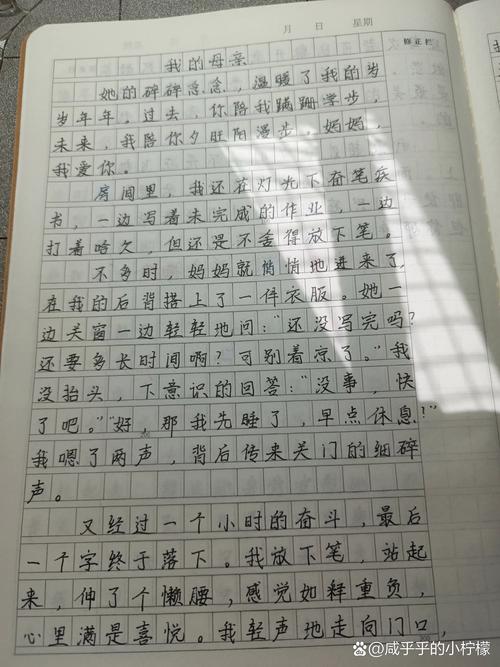 月 日 星期
修正栏
我的母亲
她的碎碎念念，温暖了我的岁
岁年年。过去，你陪我蹒跚学步，
未来，我陪你夕阳漫步，妈妈，
我爱你。
房间里，我还在灯光下奋笔疾
书，一边写着未完成的作业，一边
打着哈欠，但还是不舍得放下笔。
不多时，妈妈就悄悄地进来了，
在我的后背搭上了一件衣服。她一
边关窗一边轻轻地问：“还没写完吗？
还要多长时间啊？可别着凉了。”我
没抬头，下意识的回答：“没事，快
了吧。”“好，那我先睡了，早点休息！”
我嗯了两声，背后传来关门的细碎
声。
又经过一个小时的奋斗，最后
一个字终于落下。我放下笔，站起
来，伸了个懒腰，感觉如释重负，
心里满是喜悦。我轻声地走向门口，
@咸乎乎的小柠檬